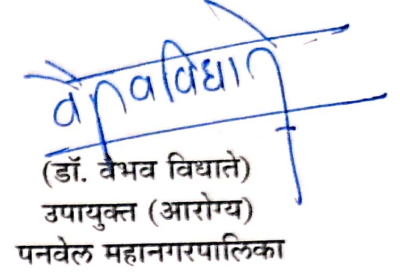 (डॉ. वैभव विधाते)
उपायुक्त (आरोग्य)
पनवेल महानगरपालिका